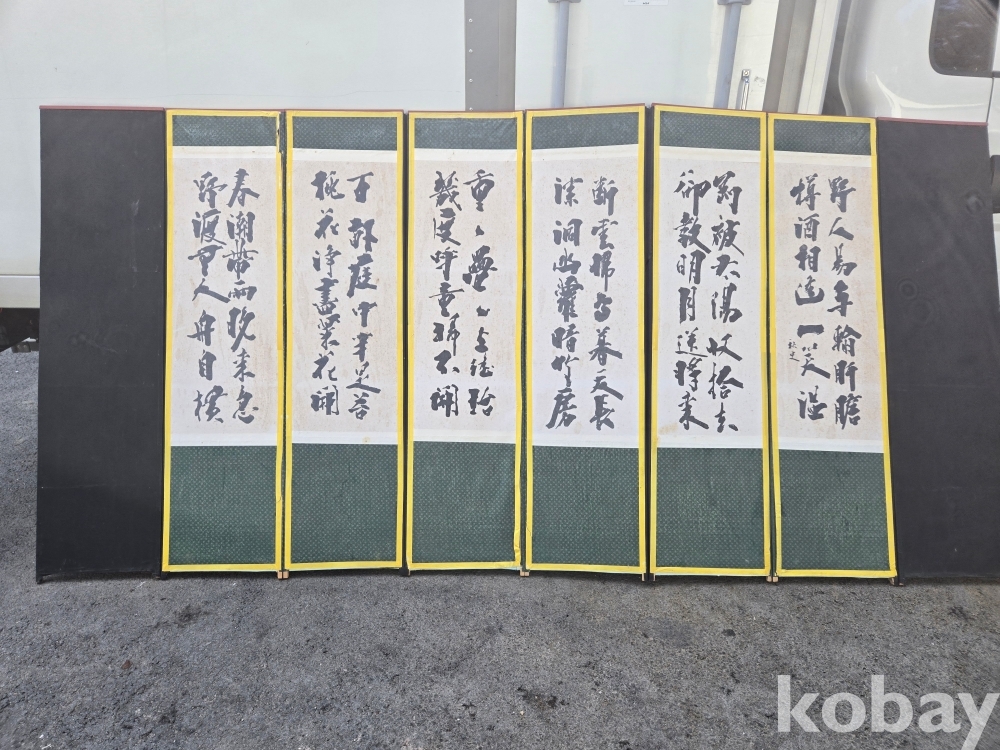 野人易與輸肝膽
樽酒相逢一笑溫
秋史
剛被太陽收拾去
却敎明月送將來
斷雲歸鳥暮天長
深洞幽蘿暗竹房
重々疊々上瑤臺
幾度呼童掃不開
百畝庭中半是苔
桃花淨盡菜花開
春潮帶雨晚來急
野渡無人舟自橫
kobay